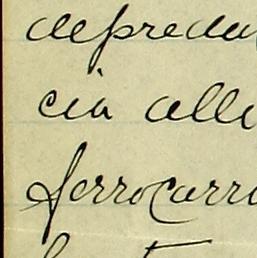 depreda
cia alle
ferrocarri